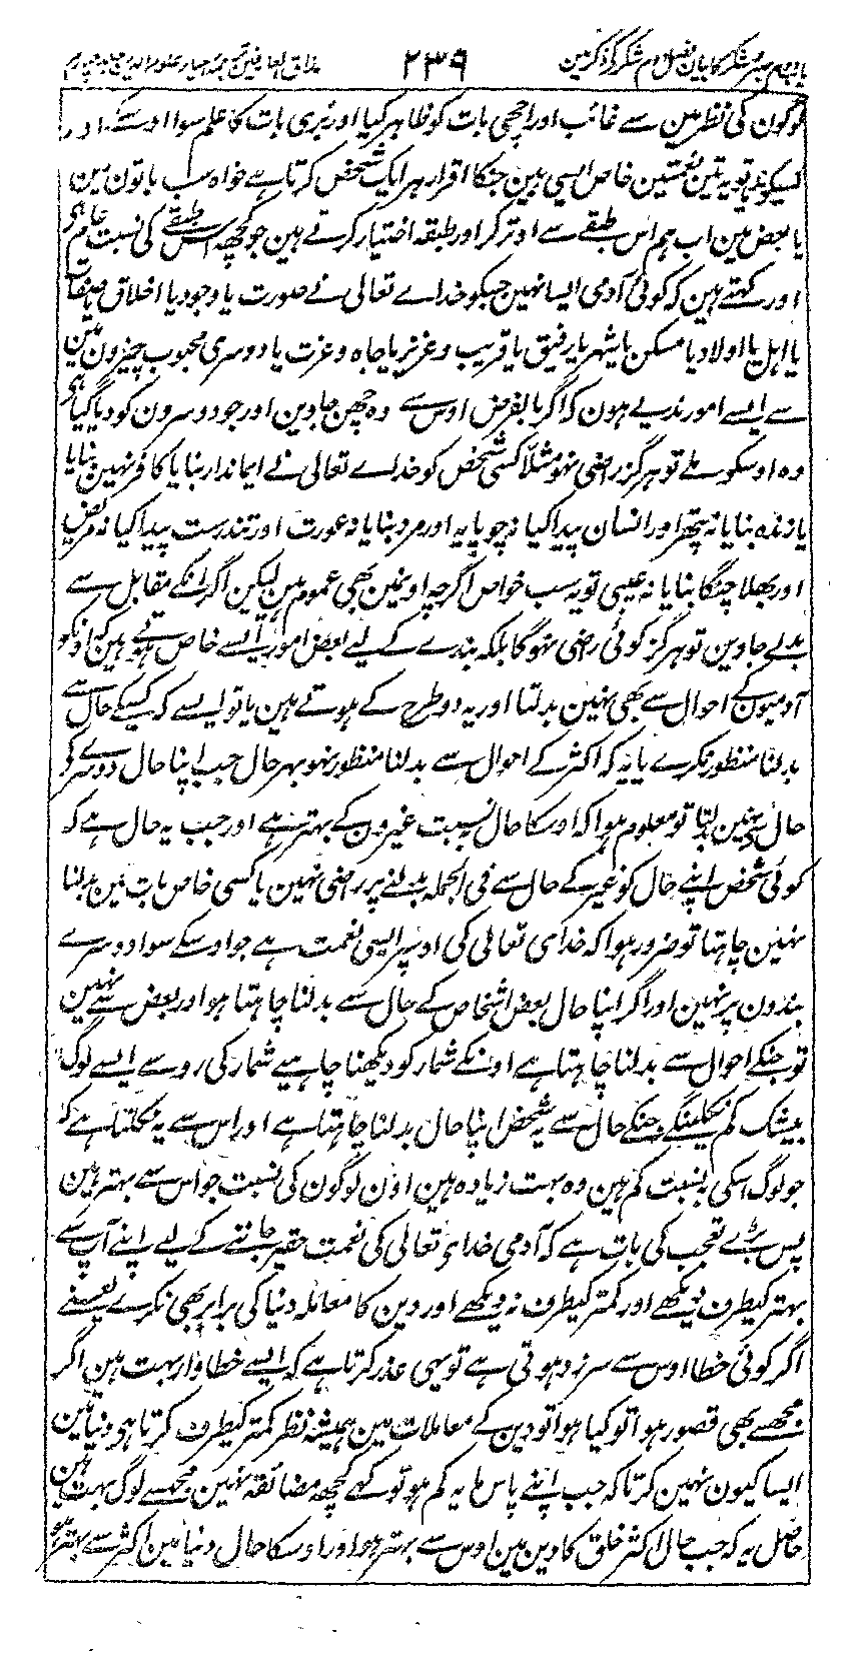 ۲۳۹
لوگون کی نظرین سے غائب اور اچھی بات کو ظاہر کیا اور بری بات کا علم سوا اوسکے اور
کسیکو نہ تو یہ تین نعمتین خاص ایسی ہین جنکا اقرار ہر ایک شخص کرتا ہے خواہ سب باتون مین
یا بعض مین اب ہم اس طبقے سے اوتر کر اور طبقہ اختیار کرتے ہین جو کچھ اس طبقے کی نسبت عام ہے
اور کہتے ہین کہ کوئی آدمی ایسا نہین جسکو خداے تعالی نے صورت یا وجود یا اخلاق یا صفات
یا اہل یا اولاد یا مسکن یا شہر یا رفیق یا قریب و عزیز یا جاہ و عزت یا دوسری محبوب چیزون مین
سے ایسے امور ندیے ہون کہ اگر بالفرض اوس سے وہ چھن جاوین اور جو دوسرون کو دیا گیا ہے
وہ اوسکو ملے تو ہرگز راضی نہو مثلاً کسی شخص کو خداے تعالی نے ایماندار بنایا کافر نہین بنایا
یا زندہ بنایا نہ پتھر اور انسان پیدا کیا نہ چوپایہ اور مرد بنایا نہ عورت اور تندرست پیدا کیا نہ مریض
اور بھلا چنگا بنایا نہ عیبی تو یہ سب خواص اگرچہ اونین بھی عموم ہین لیکن اگر انکے مقابل سے
بدلے جاوین تو ہرگز کوئی راضی نہوگا بلکہ بندے کے لیے بعض امور ایسے خاص ہوتے ہین کہ اونکو
آدمیون کے احوال سے بھی نہین بدلتا اور یہ دو طرح کے ہوتے ہین یا تو ایسے کہ کسیکے حال سے
بدلنا منظور نکرے یا یہ کہ اکثر کے احوال سے بدلنا منظور نہو بہرحال جب اپنا حال دوسرے کے
حال سے نہین بدلتا تو معلوم ہوا کہ اوسکا حال بہ نسبت غیرون کے بہتر ہے اور جب یہ حال ہے کہ
کوئی شخص اپنے حال کو غیر کے حال سے فی الجملہ بدلنے پر راضی نہین یا کسی خاص بات مین بدلنا
نہین چاہتا تو ضرور ہوا کہ خداے تعالی کی اوسپر ایسی نعمت ہے جو اوسکے سوا دوسرے
بندون پر نہین اور اگر اپنا حال بعض اشخاص کے حال سے بدلنا چاہتا ہو اور بعض سے نہین
تو جنکے احوال سے بدلنا چاہتا ہے اونکے شمار کو دیکھنا چاہیے شمار کی رو سے ایسے لوگ
بیشک کم نکلینگے جنکے حال سے یہ شخص اپنا حال بدلنا چاہتا ہے اور اس سے یہ نکلتا ہے کہ
جو لوگ اسکی بہ نسبت کم ہین وہ بہت زیادہ ہین اون لوگون کی نسبت جو اس سے بہتر ہین
پس بڑے تعجب کی بات ہے کہ آدمی خداے تعالی کی نعمت حقیر جاننے کے لیے اپنے آپ سے
بہتر کیطرف دیکھے اور کمتر کیطرف نہ دیکھے اور دین کا معاملہ دنیا کی برابر بھی نکرے یعنے
اگر کوئی خطا اوس سے سرزد ہوتی ہے تو یہی عذر کرتا ہے کہ ایسے خطاوار بہت ہین اگر
مجھسے بھی قصور ہوا تو کیا ہوا تو دین کے معاملات مین ہمیشہ نظر کمتر کیطرف کرتا ہے دنیا مین
ایسا کیون نہین کرتا کہ جب اپنے پاس مایہ کم ہو تو کہے کچھ مضائقہ نہین مجھسے لوگ بہت ہین
حاصل یہ کہ جب حال اکثر خلق کا دین مین اوس سے بہتر ہوا اور اوسکا حال دنیا مین اکثر سے بہتر ہوا